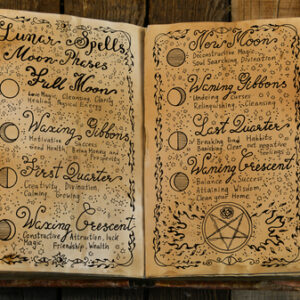 Lunar Spells
Moon Phases
Full Moon
Love, Cleansing, Charm,
Healing Physical Energy
Waxing Gibbons
Motivation Success
Good Health Bring Money
First Quarter
Creativity, Divination
Calming, Growing
Waxing Crescent
Constructive Attraction, luck
Magic Friendship Wealth
New Moon
Deconstruction Magic,
Soul Searching Divination
Waning Gibbons
Undoing Curses
Relinquishing Cleansing
Last Quarter
Breaking Bad Habits
Banishing Clear out negative
Waning Crescent
Balance Success
Attaining Wisdom
Clean your Home